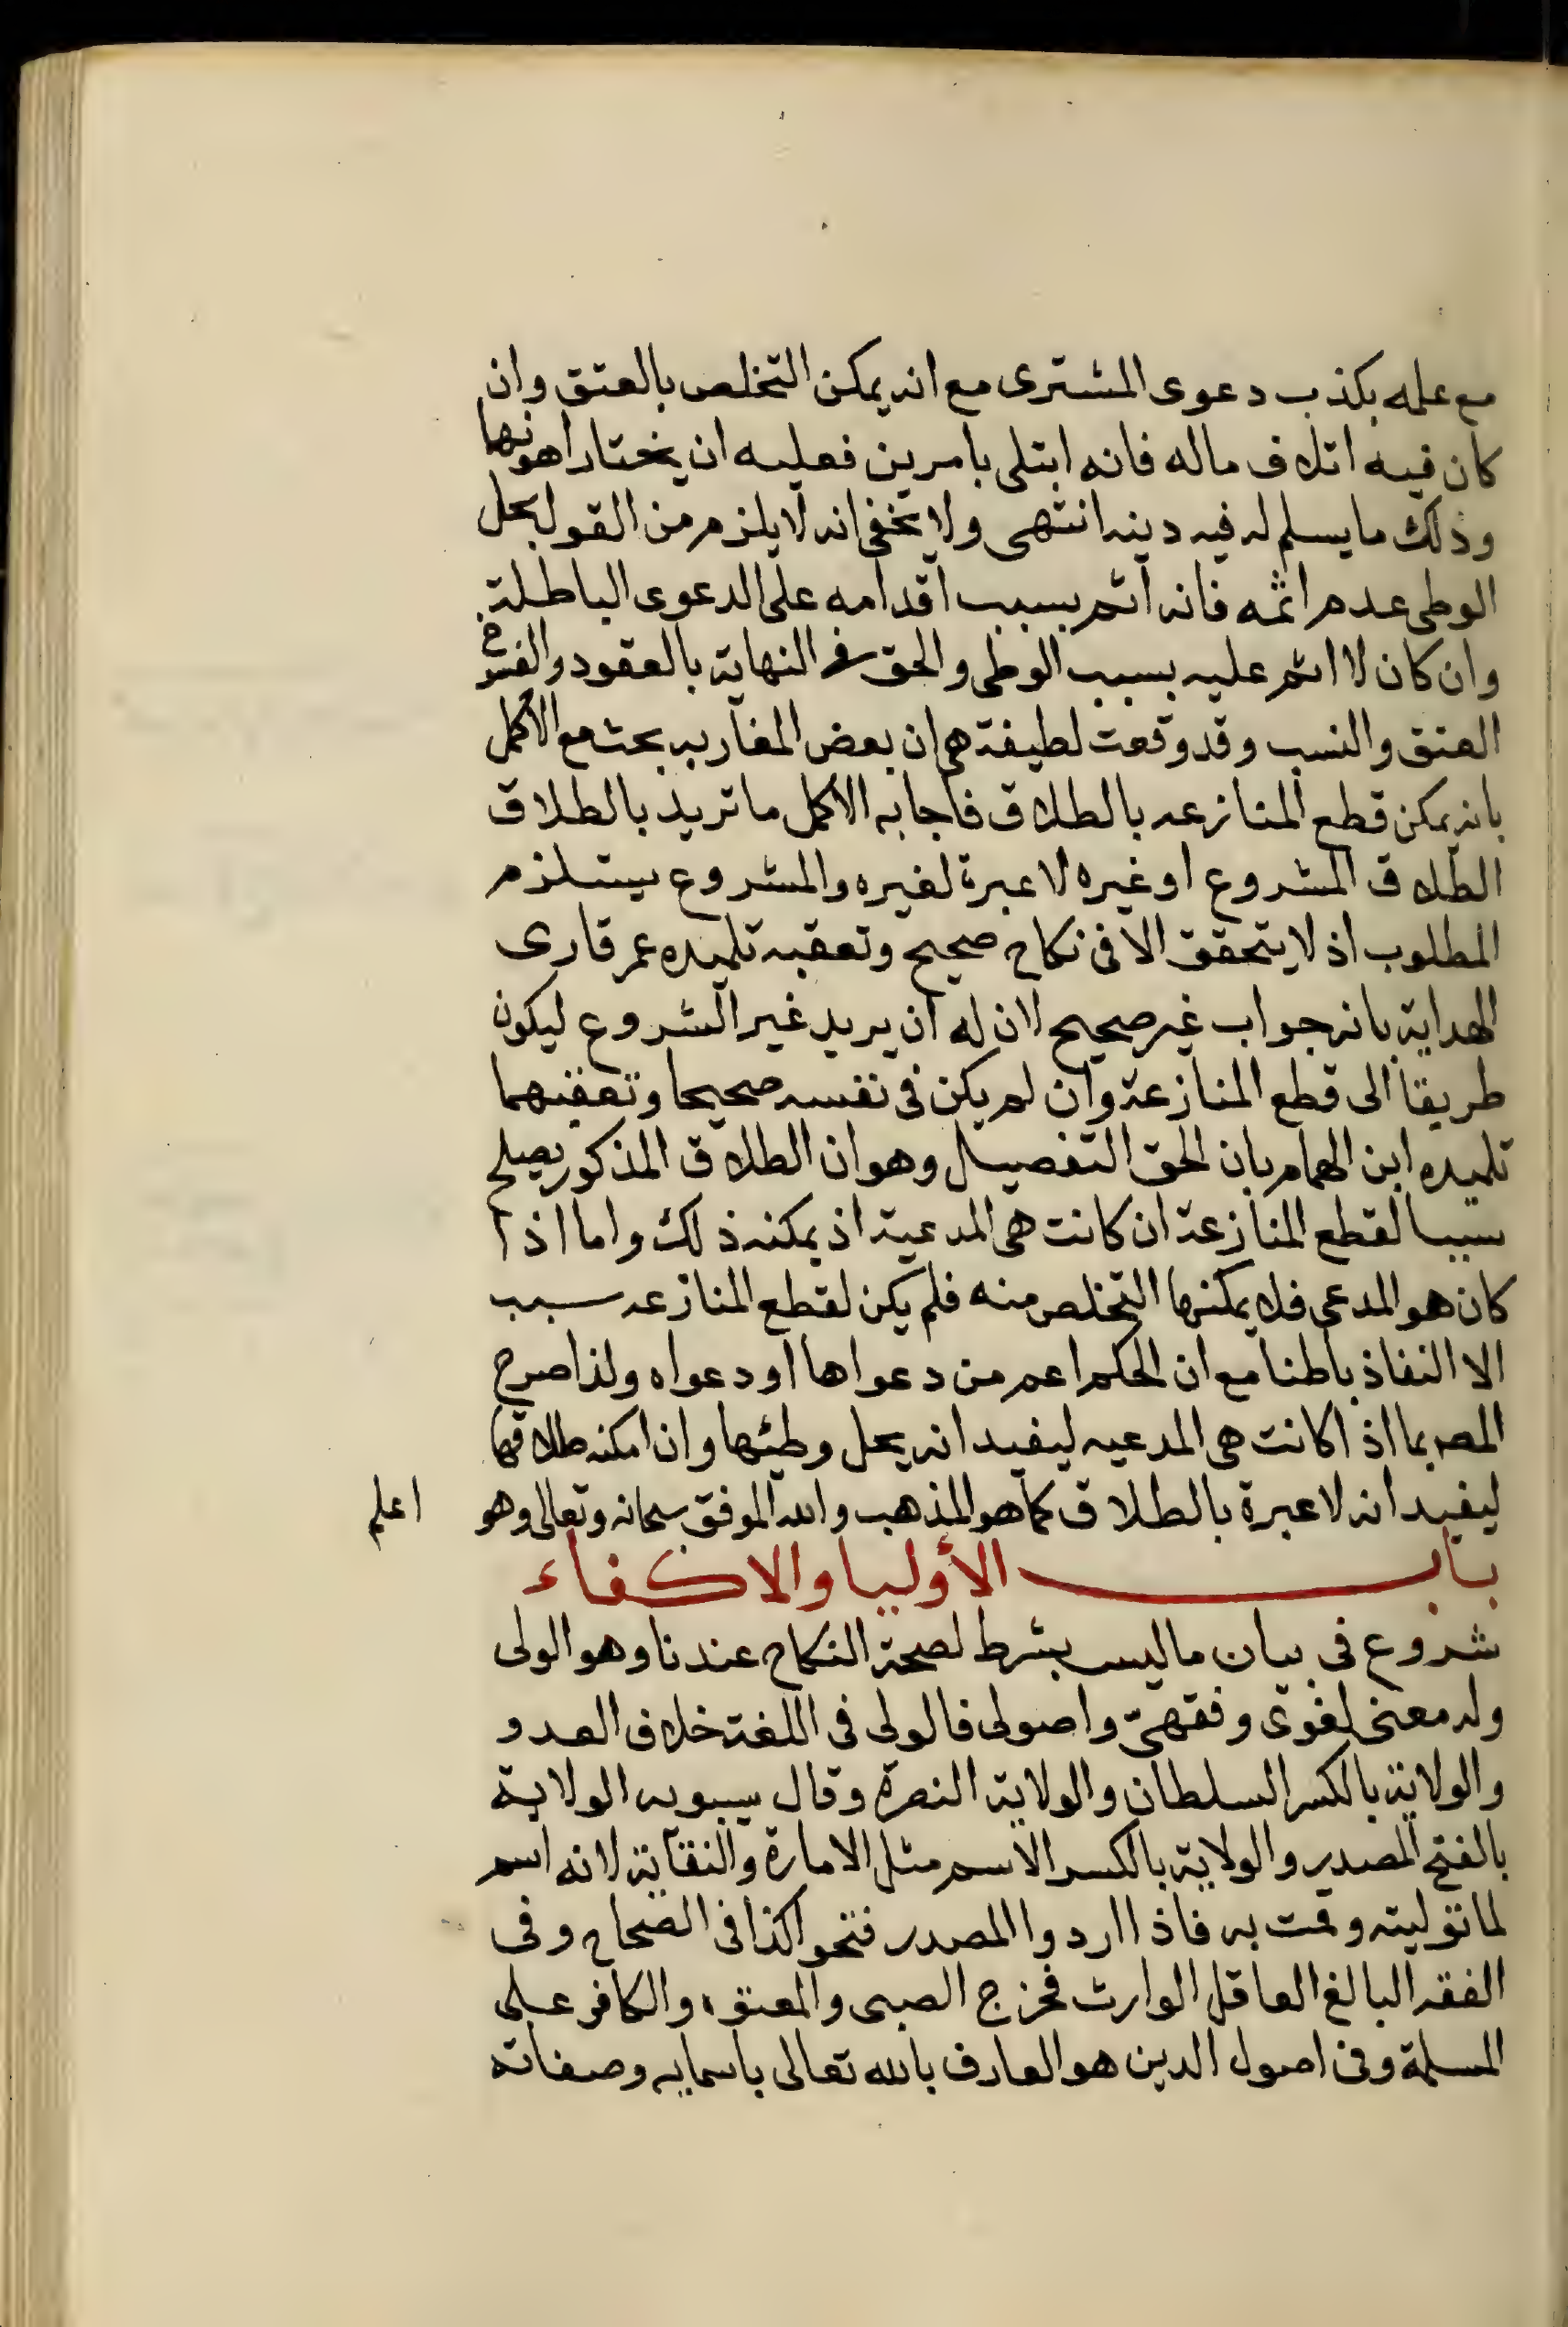 مع علمه بكذب دعوى المشترى مع انه يمكن التخلص بالعتق وان
كان فيه اتلاف ماله فانه ابتلى بامرين فعليه ان يختار اهونها
وذلك ما يسلم له فيه دينه انتهى ولا يخفى انه لا يلزم من القول بحل
الوطى عدم اثمه فانه اثم بسبب اقدامه على الدعوى الباطلة
وان كان لا اثم عليه بسبب الوطى والحق فى النهاية بالعقود والفسوخ
العتق والنسب وقد وقعت لطيفة هى ان بعض المغاربه بحث مع الاكمل
بانه يمكن قطع المنازعه بالطلاق فاجابه الاكمل ما تريد بالطلاق
الطلاق المشروع او غيره لا عبرة لغيره والمشروع يستلزم
المطلوب اذ لا يتحقق الا فى نكاح صحيح وتعقبه تلميذه عمر قارى
الهداية بانه جواب غير صحيح لان له ان يريد غير المشروع ليكون
طريقا الى قطع المنازعة وان لم يكن فى نفسه صحيحا وتعقبهما
تلميذه ابن الهمام بان الحق التفصيل وهو ان الطلاق المذكور يصلح
سببا لقطع المنازعة ان كانت هى المدعية اذ يمكنه ذلك واما اذا
كان هو المدعى فلا يمكنها التخلص منه فلم يكن لقطع المنازعه سبب
الا النفاذ باطنا مع ان الحكم اعم من دعواها او دعواه ولذا صرح
المصر بما اذا كانت هى المدعيه ليفيد انه يحل وطئها وان امكنه طلاقها
ليفيد انه لا عبرة بالطلاق كما هو المذهب والله الموفق سبحانه وتعالى وهو اعلم
باب الأوليا والاكفاء
شروع فى بيان ما ليس بشرط لصحة النكاح عندنا وهو الولى
وله معنى لغوى وفقهىّ واصولى فالولى فى اللغة خلاف العدو
والولاية بالكسر السلطان والولاية النصرة وقال سيبويه الولاية
بالفتح المصدر والولاية بالكسر الاسم مثل الامارة والنقابة لانه اسم
لما توليته وقمت به فاذا اردوا المصدر فتحوا كذا فى الصحاح وفى
الفقه البالغ العاقل الوارث فخرج الصبى والمعتوه والكافر على
المسلمة وفى اصول الدين هو العارف بالله تعالى باسمايه وصفاته